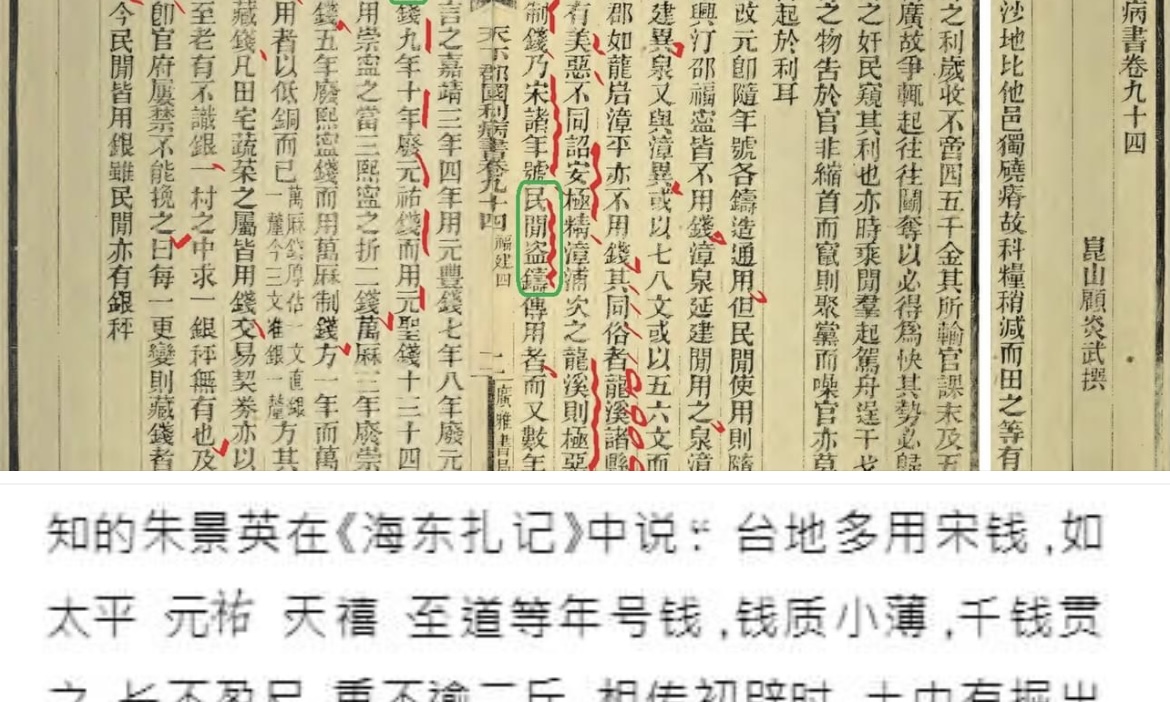 病書卷九十四
崑山顧炎武撰
沙地比他邑獨磽瘠故科糧稍減而田之等有
之利歲收不啻四五千金其所輸官課未及五
廣故爭輒起往往鬬奪以必得為快其勢必歸
之奸民窺其利也亦時乘閒羣起駕舟逞干戈
之物告於官非縮首而竄則聚黨而噪官亦莫
起於利耳
改元卽隨年號各鑄造通用但民閒使用則隨
興汀邵福寧皆不用錢漳泉延建閒用之泉漳
建異泉又與漳異或以七八文或以五六文而
郡如龍岩漳平亦不用錢其同俗者龍溪諸縣
有美惡不同詔安極精漳浦次之龍溪則極惡
制錢乃宋諸年號民閒盜鑄傳用者而又數年
天下郡國利病書卷九十四 福建四 二 廣雅書局
言之嘉靖三年四年用元豐錢七年八年廢元
錢九年十年廢元祐錢而用元聖錢十三十四
用崇寧之當三熙寧之折二錢萬厤三年廢崇
錢五年廢熙寧錢而用萬厤制錢方一年而萬
用者以低銅而已萬厤錢厚佔一文直銀一釐今三文准銀一釐方其
藏錢凡田宅蔬菜之屬皆用錢交易契券亦以
至老有不識銀一村之中求一銀秤無有也及
卽官府屢禁不能挽之曰每一更變則藏錢者
今民閒皆用銀雖民閒亦有銀秤
知的朱景英在《海东扎记》中说:“台地多用宋钱,如
太平 元祐 天禧 至道等年号钱,钱质小薄,千钱贯
之 长不盈尺 重不逾二斤 相传初辟时 土中有掘出